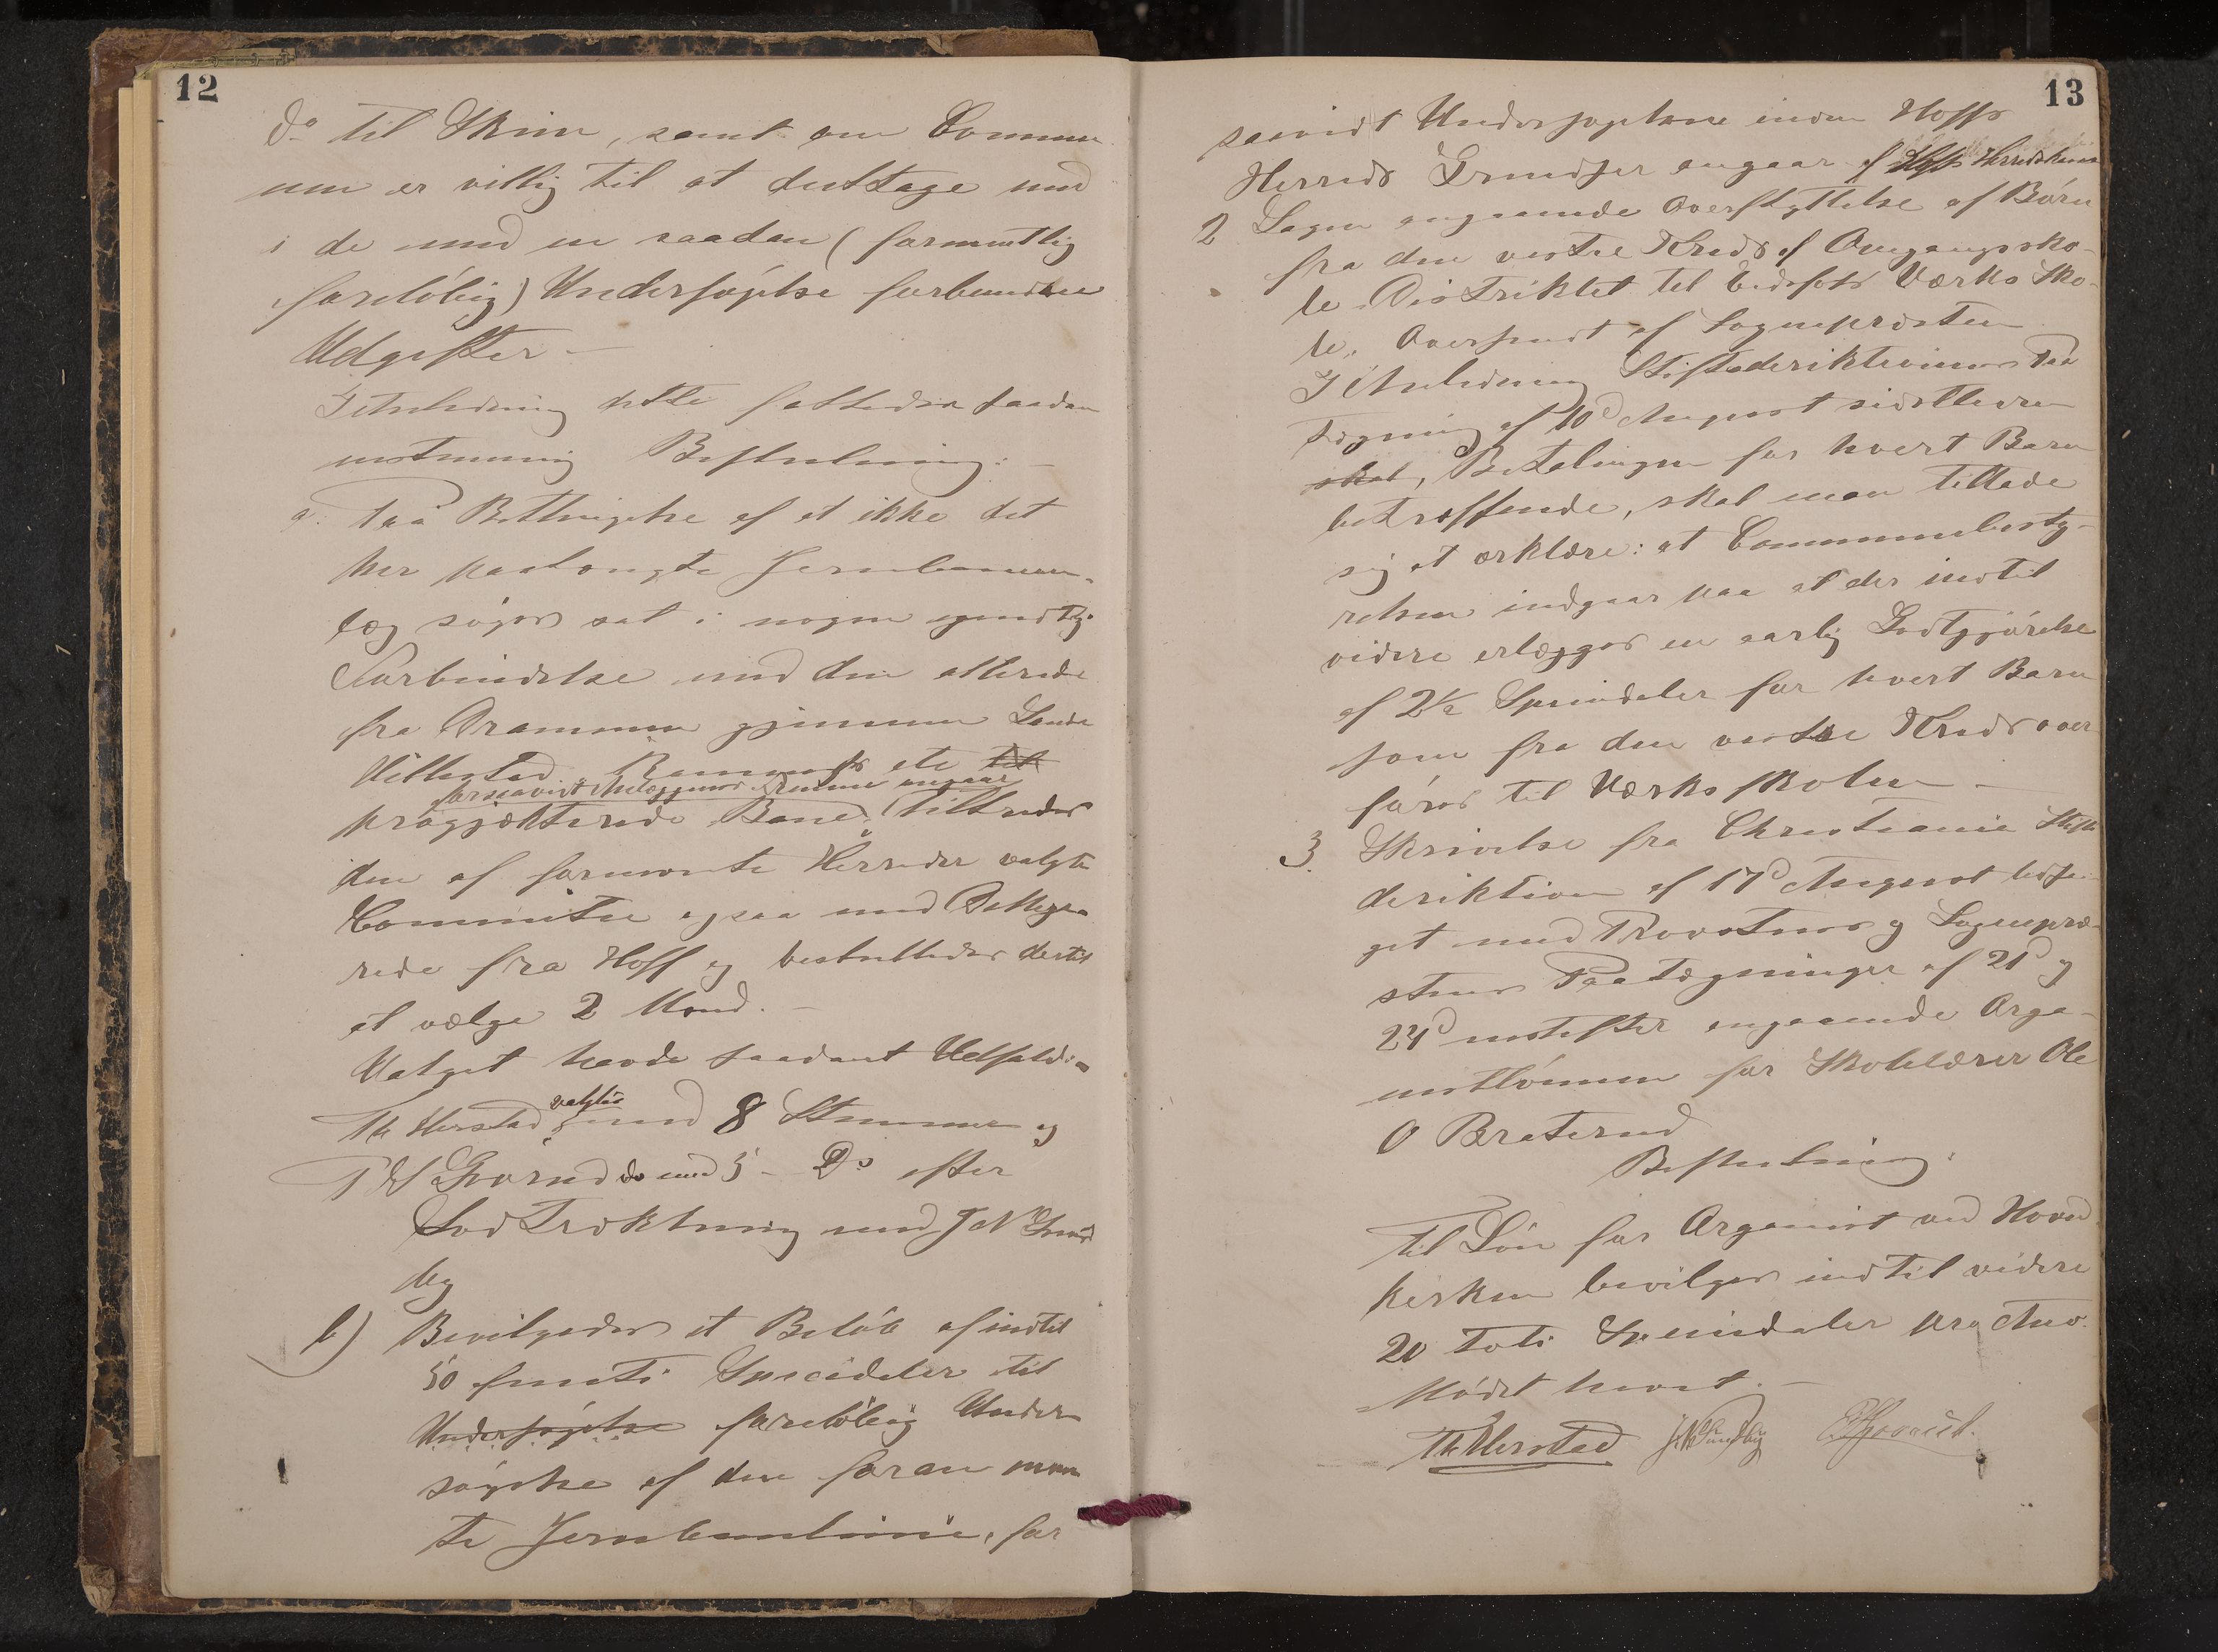 12
do til Skien, samt om Commu
nen er villig til at deeltage med
i de med en saadan (formentlig
foreløbig) Undersøgelse forbundne
Udgifter —
I Anledning dette fattedes saadan
enstemmig Beslutning: —
a. Paa Betingelse af at ikke det
her paatængte Jernbanean-
læg søges sat i nogen
Forbindelse med den allerede
fra Drammen gjennem Sande
etc til
forsaavidt Anlægget denne angaar
progjækterede Bane, tiltrædes
den af fornævnte Herreder valgte
Committee ogsaa med Delege-
rede fra Hoff og besluttedes dertil
at vælge 2 Mænd. —
Valget havde saadant Udfald:
Th Herstad valgtes med 8 Stemmer og
do med 5 — Do efter
Lodtrækning med J N Sund
by
b) Bevilgedes et Beløb af indtil
50 femti Speciedaler til
Undersøgelse foreløbig Under
søgelse af den foran nævn
te Jernbanelinie, for
13
saavidt Undersøgelsene inden Hoffs
Herreds Grændser angaar af Hofs Herredskasse
2 Sagen angaaende Overflyttelse af Børn
fra den vestre Kreds af Omgangssko-
le-Distriktet til Eidsfos Værks Sko-
le. Oversendt af Sognepræsten
I Anledning Stiftsdirektionens Paa
tegning af 10d August sidstleden
skal, Betalingen for hvert Barn
betræffende, skal man tillade
sig at erklære: at Communebesty-
relsen indgaar paa at der indtil
videre erlægges en aarlig Godtgjørelse
af 2½ Speciedaler for hvert Barn
som fra den vestre Kreds over
føres til Værksskolen —
3. Skrivelse fra Christiania Stifts
direktion af 17d August ledsa-
get med Provstens og Sognepræ-
stens Paategninger af 21d og
24d næstefter angaaende Orga-
nistlønnen for Skolelærer Ole
O Braterud
Beslutning:
Til Løn for Organist ved Hoved
kirken bevilges indtil videre
20 Tyve Speciedaler pro Anno.
Mødet hævet. —
Th Herstad J N Sundby